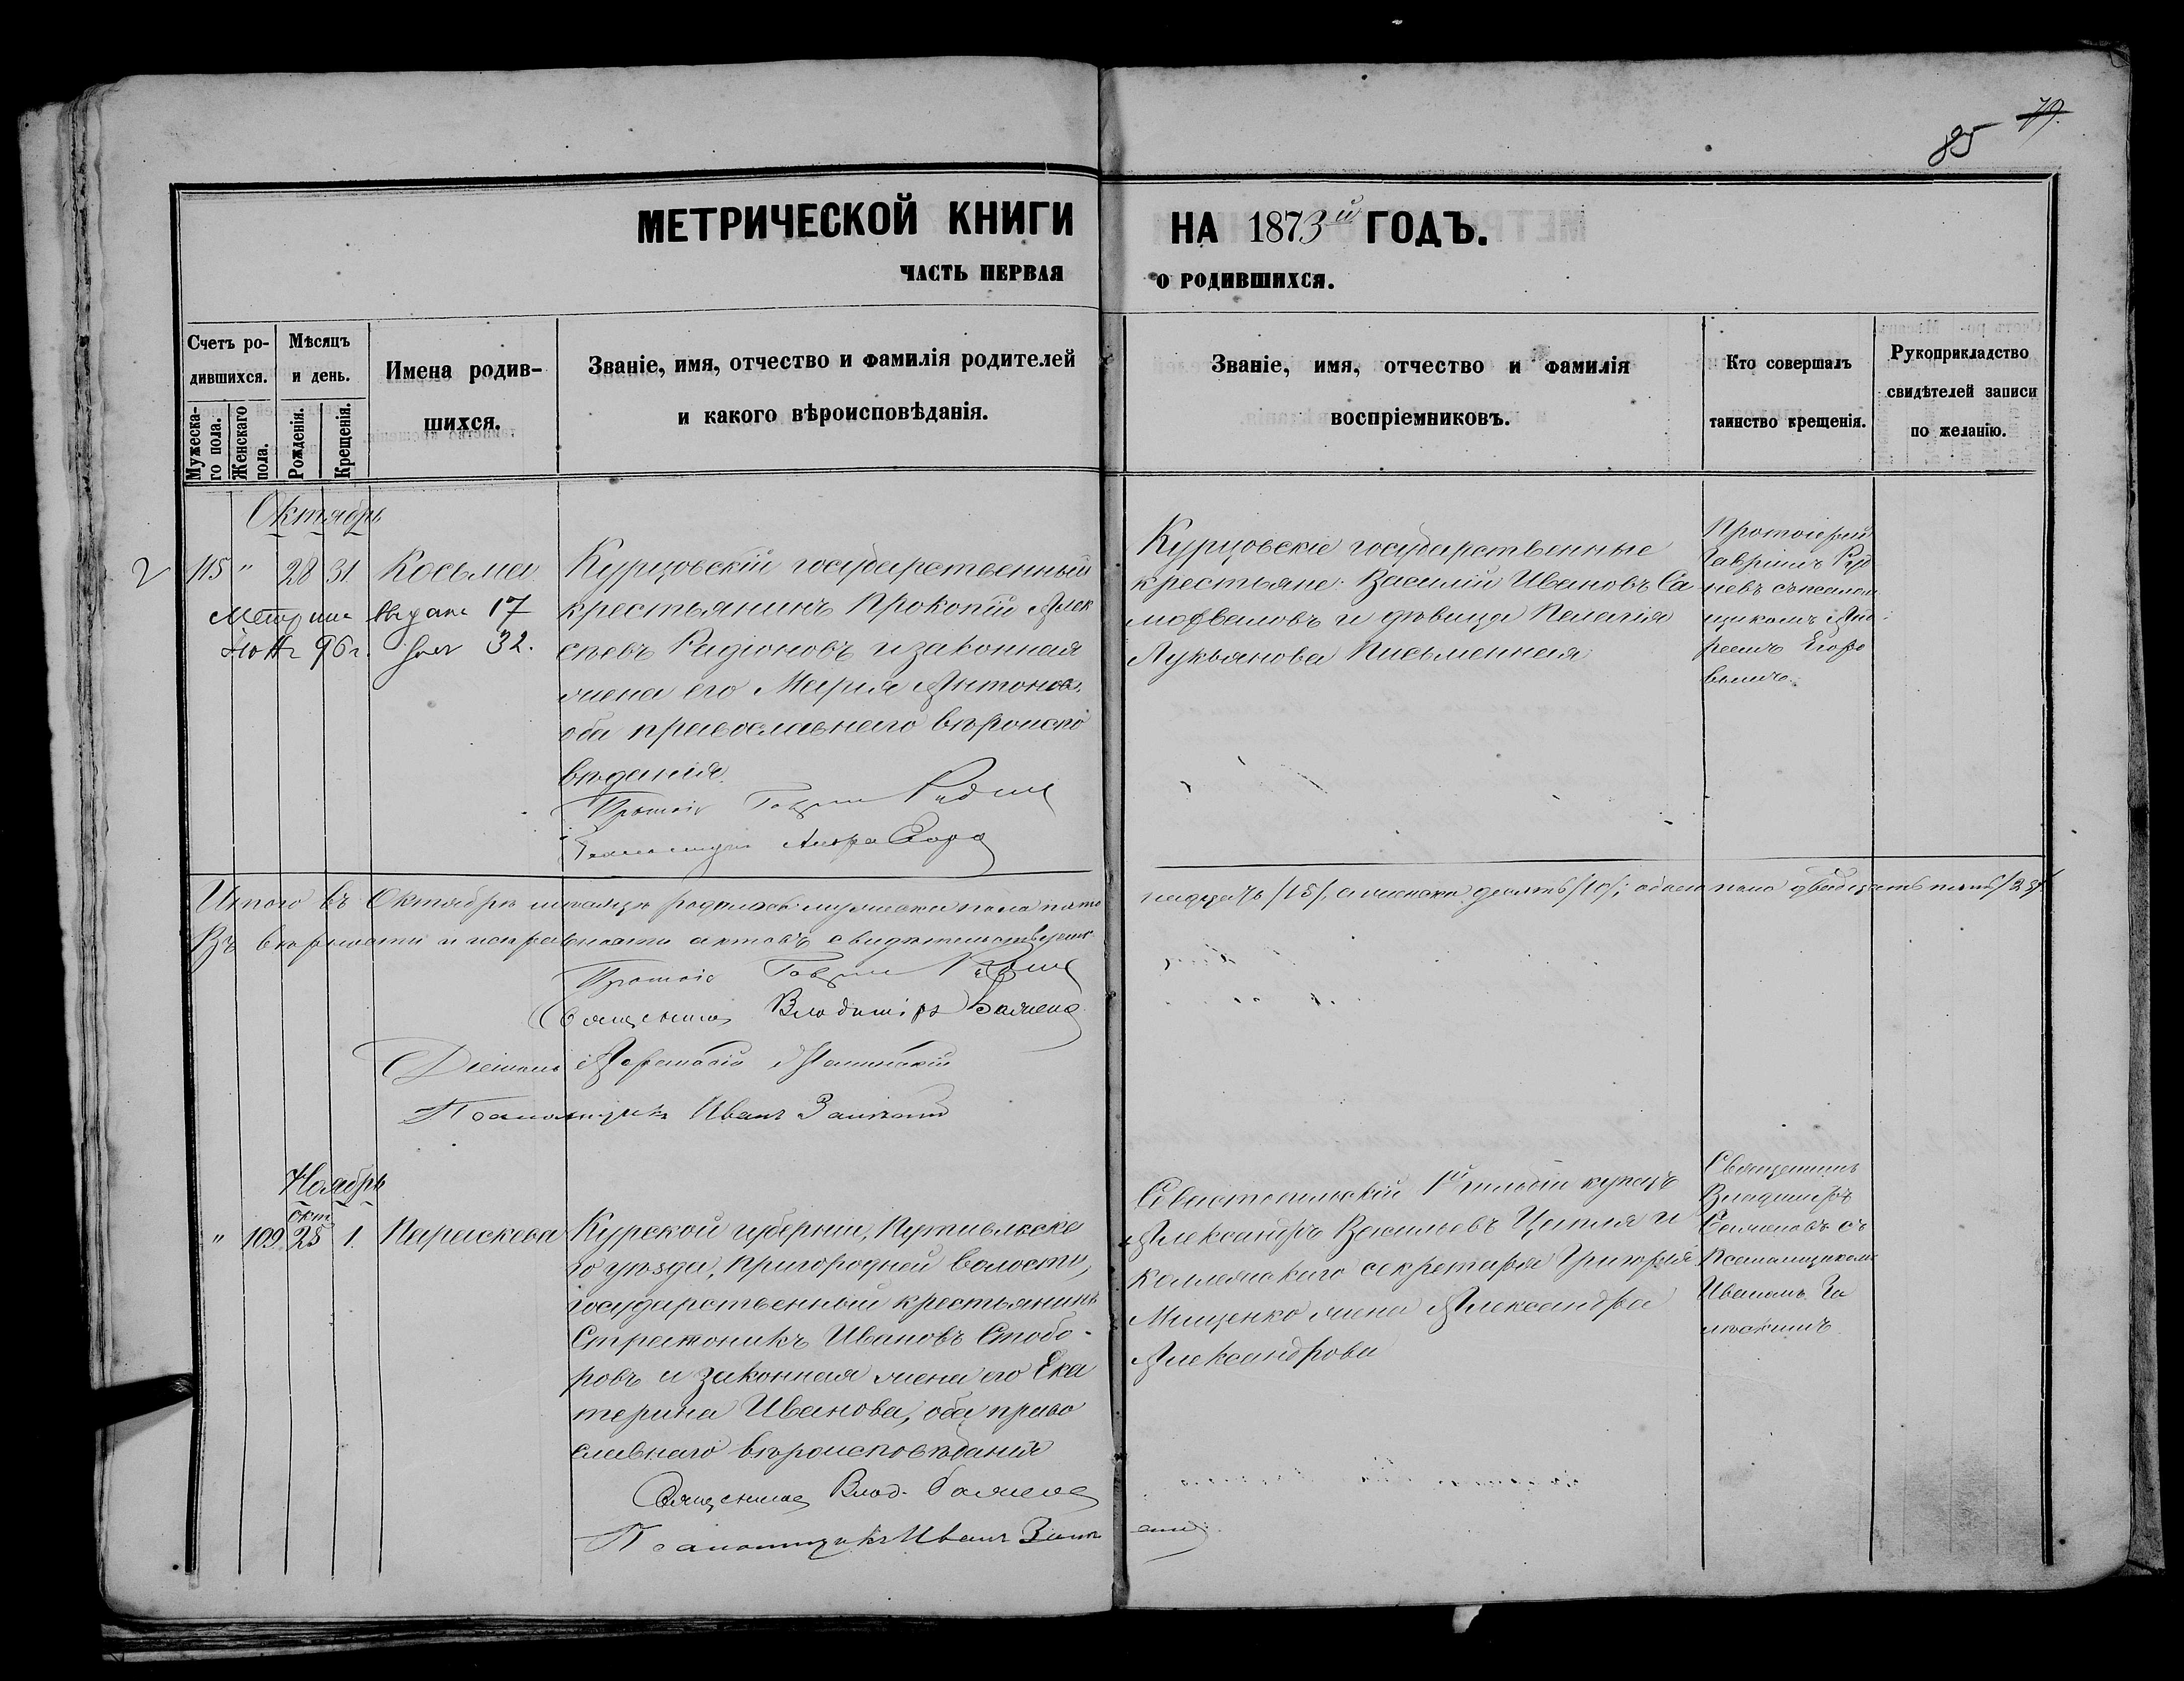 85 79.
МЕТРИЧЕСКОЙ КНИГИ НА 1873й ГОДЪ.
ЧАСТЬ ПЕРВАЯ О РОДИВШИХСЯ.
Счетъ ро-
дившихся.
Мужеска-
го пола.
Женскаго
пола.
Мѣсяцъ
и день.
Рожденія.
Крещенія.
Имена родив-
шихся.
Званіе, имя, отчество и фамилія родителей
и какого вѣроисповѣданія.
Званіе, имя, отчество и фамилія
воспріемниковъ.
Кто совершалъ
таинство крещенія.
Рукоприкладство
свидѣтелей записи
по желанію.
Октябрь
2
115 " 28 31 Косьма
выдана 17
96 г. 32.
Курцовскій государственный
крестьянинъ Прокопій Алек
сѣевъ Радіоновъ и законная
жена его Марія Антонова
оба православнаго вѣроиспо
вѣданія.
Курцовскіе государственные
крестьяне: Василій Ивановъ Са
мофваловъ и дѣвица Пелагія
Лукьянова Письменная
Протоіерей
Гавріилъ Руд
невъ съ псалом
щикомъ Анд
реемъ Егоро
вымъ.
Итого въ Октябрѣ мѣсяцѣ родилось мужеска пола пят
надцать /15/, а женска десять /10/; обоего пола двадцать пять /25/
Въ вѣрности и исправности актовъ свидѣтельствуемъ
Владиміръ Баженов
Псаломщикъ Иванъ
Ноябрь
Окт
" 109 28 1. Параскева
Курской губерніи, Путивльска
го уѣзда, Пригородней волости,
государственный крестьянинъ
Стратоникъ Ивановъ Стобо-
ровъ и законная жена его Ека
терина Иванова, оба право
славнаго вѣроисповѣданія
Священник Влад. Баженов
Псаломщикъ Иванъ
Севастопольскій 1й гильдіи купецъ
Александръ Васильевъ и
коллежскаго секретаря Григорія
Мищенко жена Александра
Александрова
Священникъ
Владиміръ
Баженовъ съ
Псаломщикомъ
Иваномъ